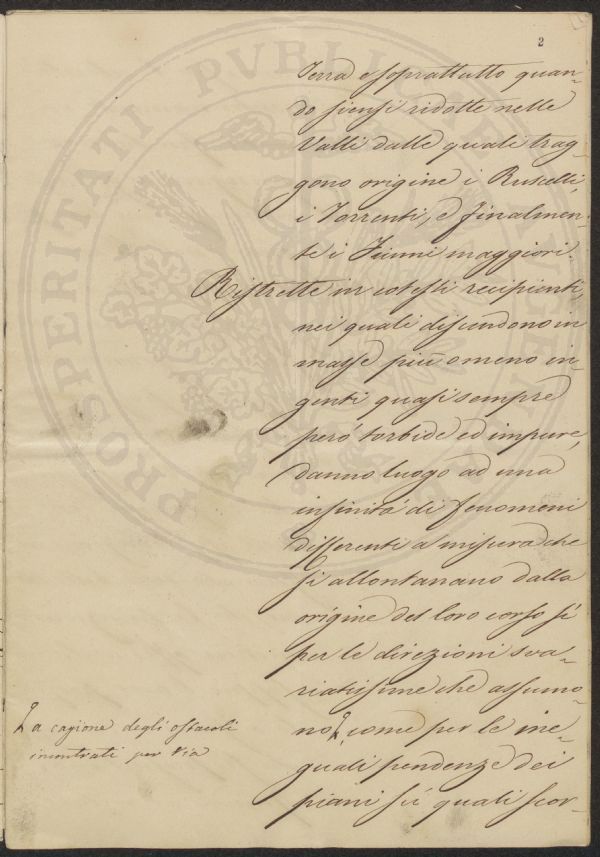 2
Terra e soprattutto quan-
do siensi ridotte nelle
Valli dalle quali trag-
gono origine i Ruscelli,
i Torrenti, e finalmen-
te i Fiumi maggiori.
Ristrette in cotesti recipienti,
nei quali discendono in
masse più o meno in-
genti quasi sempre
però torbide ed impure,
danno luogo ad una
infinità di fenomeni
differenti a misura che
si allontanano dalla
origine del loro corso sì
per le direzioni sva-
riatissime che assumo-
no, come per le ine-
guali pendenze dei
piani sú quali scor-
a cagione degli ostacoli
incontrati per via
PROSPERITATI PVBLICAE AVGENDAE